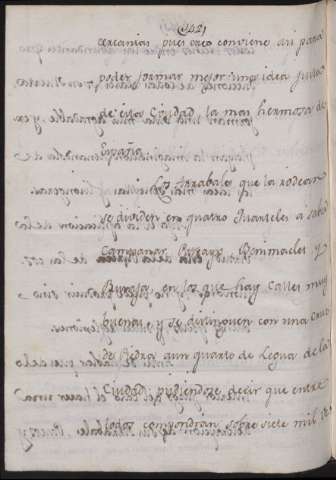 (42)
cercanias pues creo conviene asi para
poder formar mejor una idea justa
de esta Ciudad la mas hermosa de
España.
Los Arrabales que la rodean
se dividen en quatro Quarteles a saber
Campanar Ruzafa Benimaclet y
Burjasot, en los que hay Calles muy
buenas y se distinguen con una Cruz
de Piedra a un quarto de Legua de la
Ciudad pudiendose decir que entre
todos compondran sobre siete mil